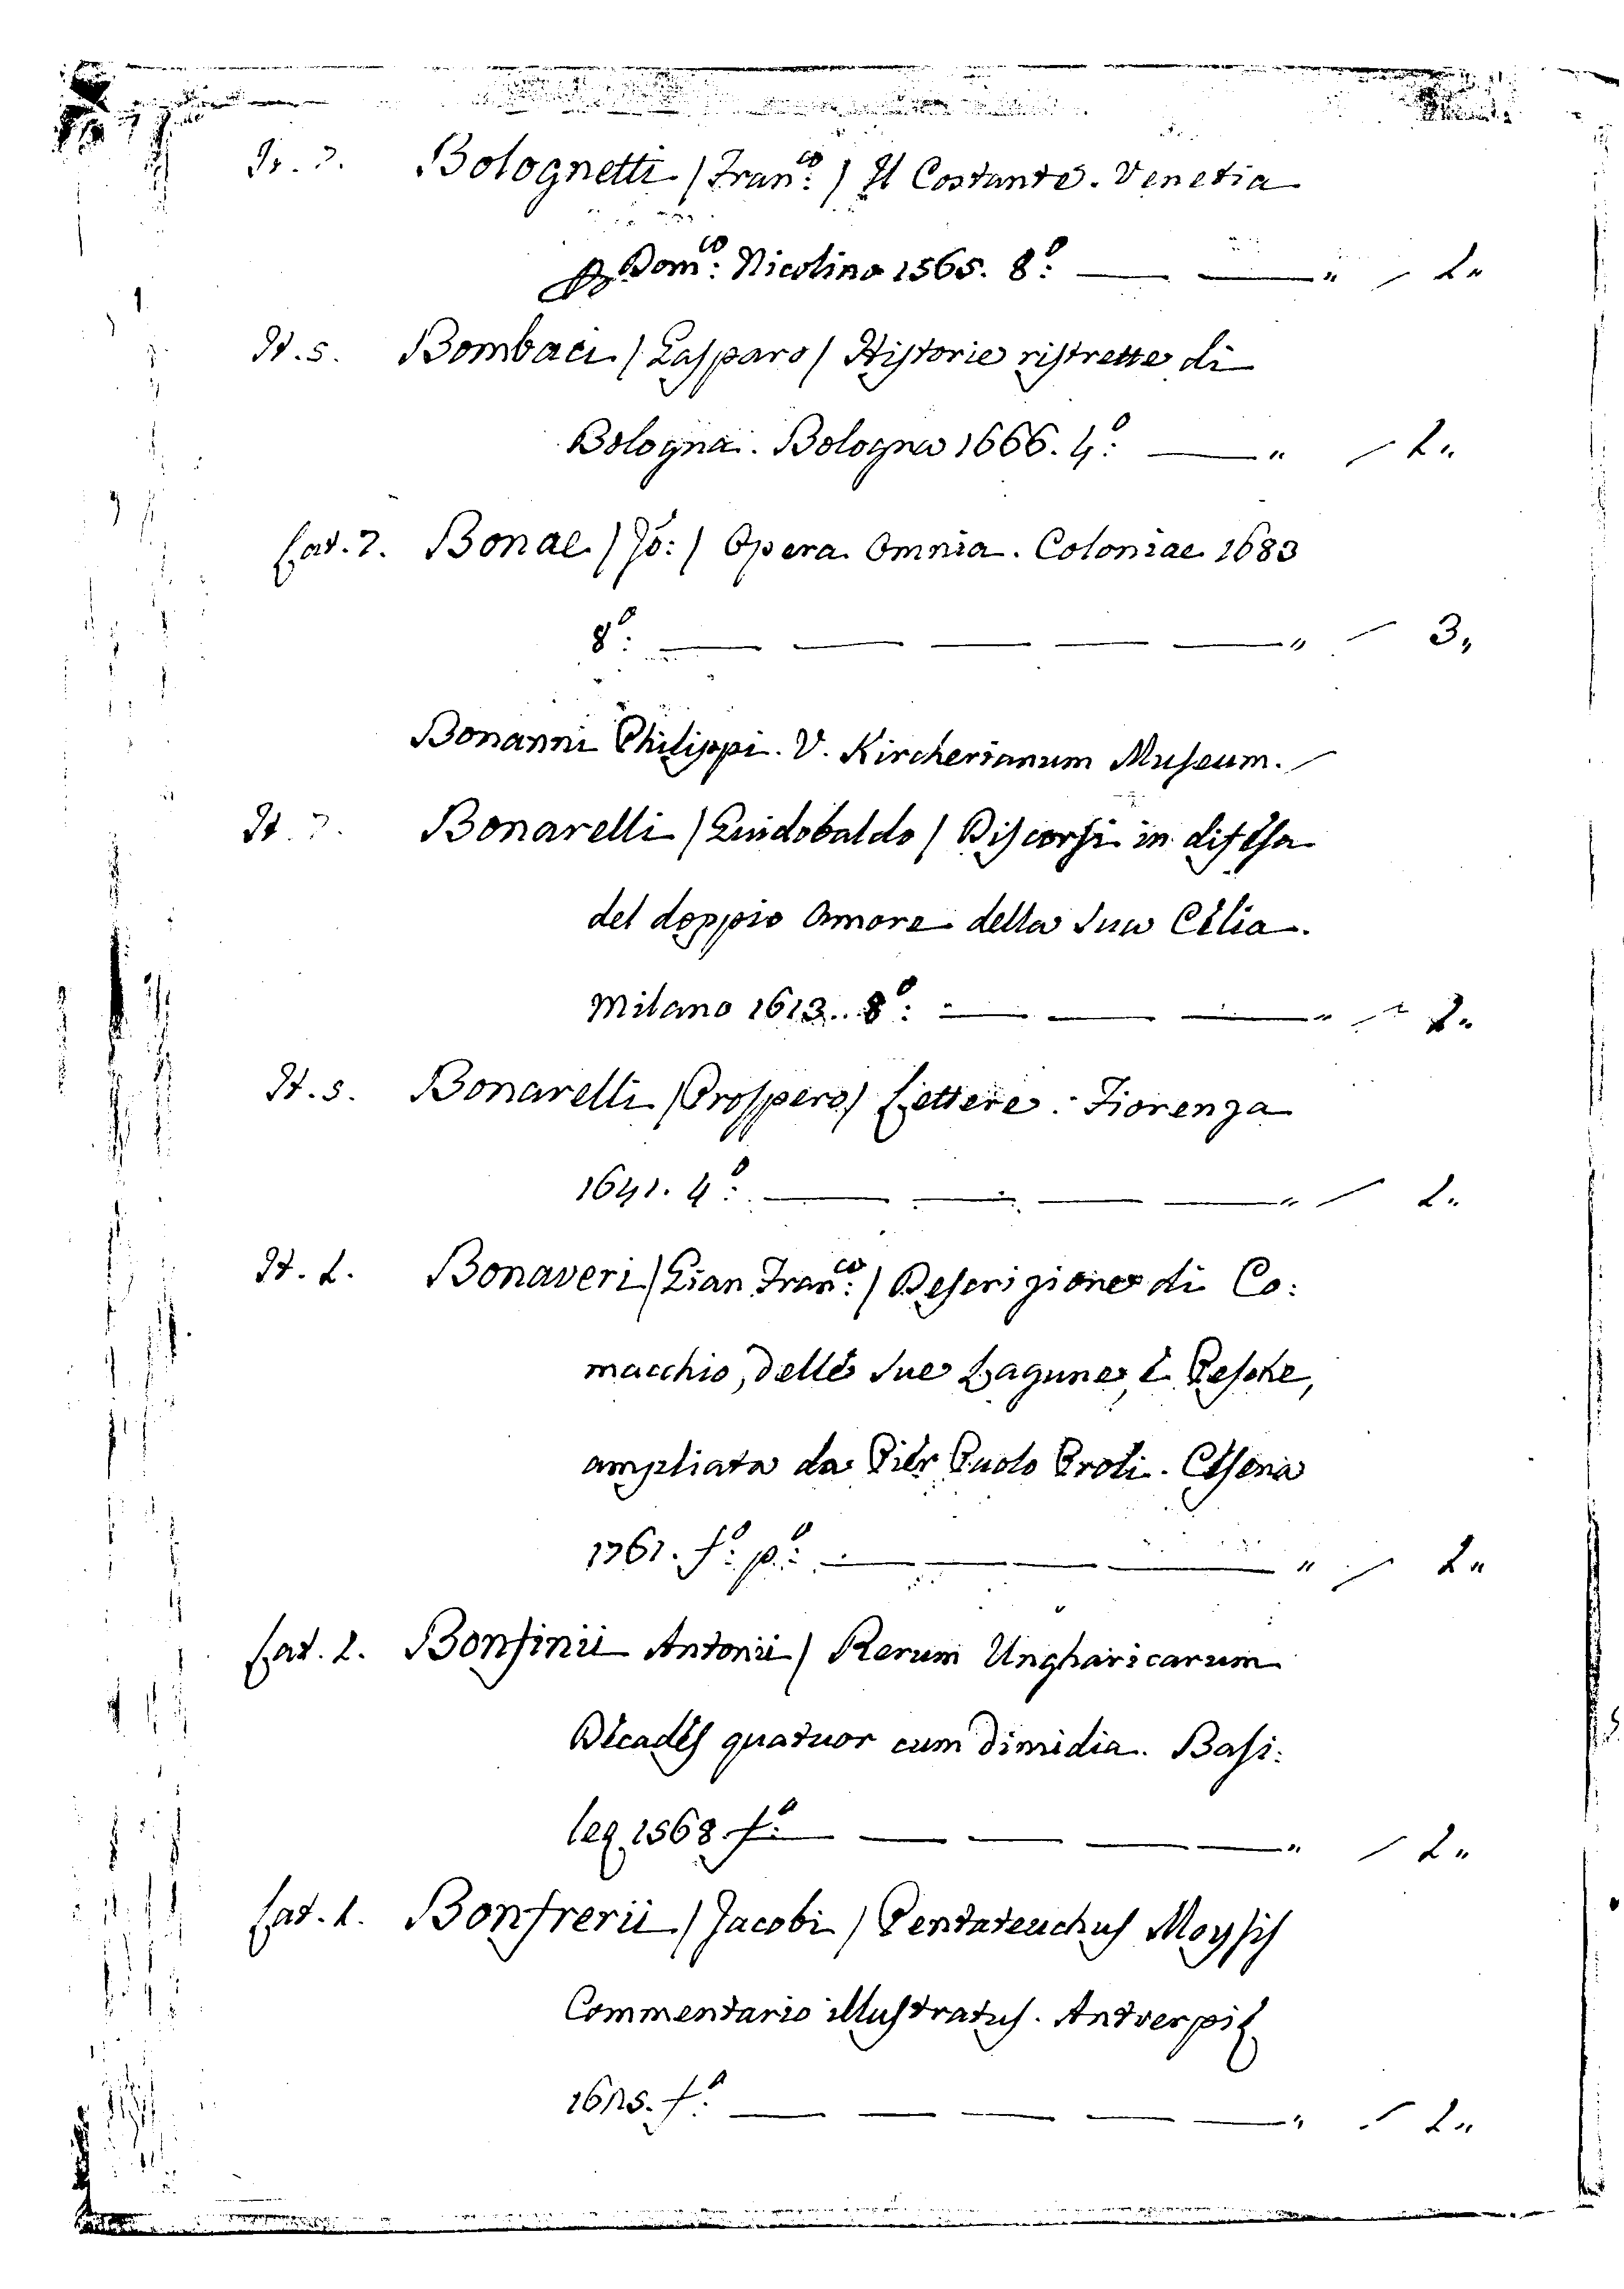 It. 7. Bolognetti /Fran:co/ Il Costante. Venetia
Dom:co Nicolino 1565. 8:o — — „ / 1„
It. 5. Bombaci /Gasparo/ Historie ristrette di
Bologna. Bologna 1666. 4:o — „ / 1„
Lat. 7. Bonae /Jo:/ Opera Omnia. Coloniae 1683
8:o — — — — — „ / 3„
Bonanni Philippi. V. Kircherianum Museum. /
It. 7. Bonarelli /Guidobaldo/ Discorsi in difesa
del doppio Amore della sua Celia.
Milano 1613. 8:o — — — „ / 1„
It. 5. Bonarelli /Prospero/ Lettere. Fiorenza
1641. 4:o — — — — „ / 1„
It. 1. Bonaveri /Gian Fran:co/ Descrizione di Co:
macchio, delle sue Lagune, e Pesche,
ampliata da Pier Paolo Proti. Cesena
1761. f:o p:o — — — — „ / 1„
Lat. 1. Bonfinii Antonii/ Rerum Ungharicarum
Decades quatuor cum dimidia. Basi:
leę 1568 f:o — — — — — „ / 1„
Lat. 1. Bonfrerii /Jacobi/ Pentateuchus Moysis
Commentario illustratus. Antverpię
f:o — — — — — „ / 1„